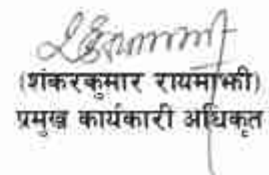 (शंकरकुमार रायमाझी)
प्रमुख कार्यकारी अधिकृत